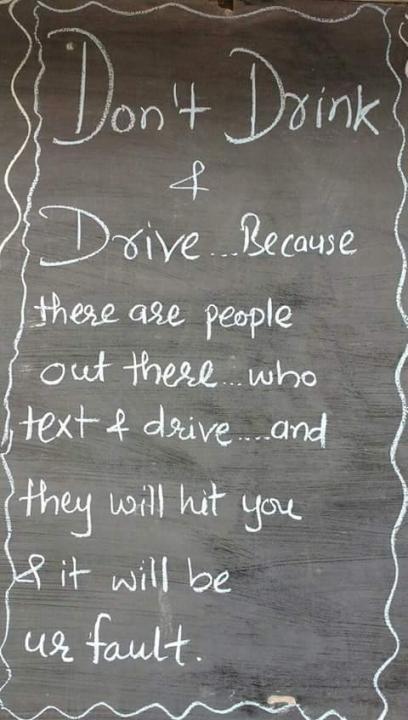 Don't Drink
&
Drive...Because
there are people
out there...who
text & drive....and
they will hit you
& it will be
ur fault.